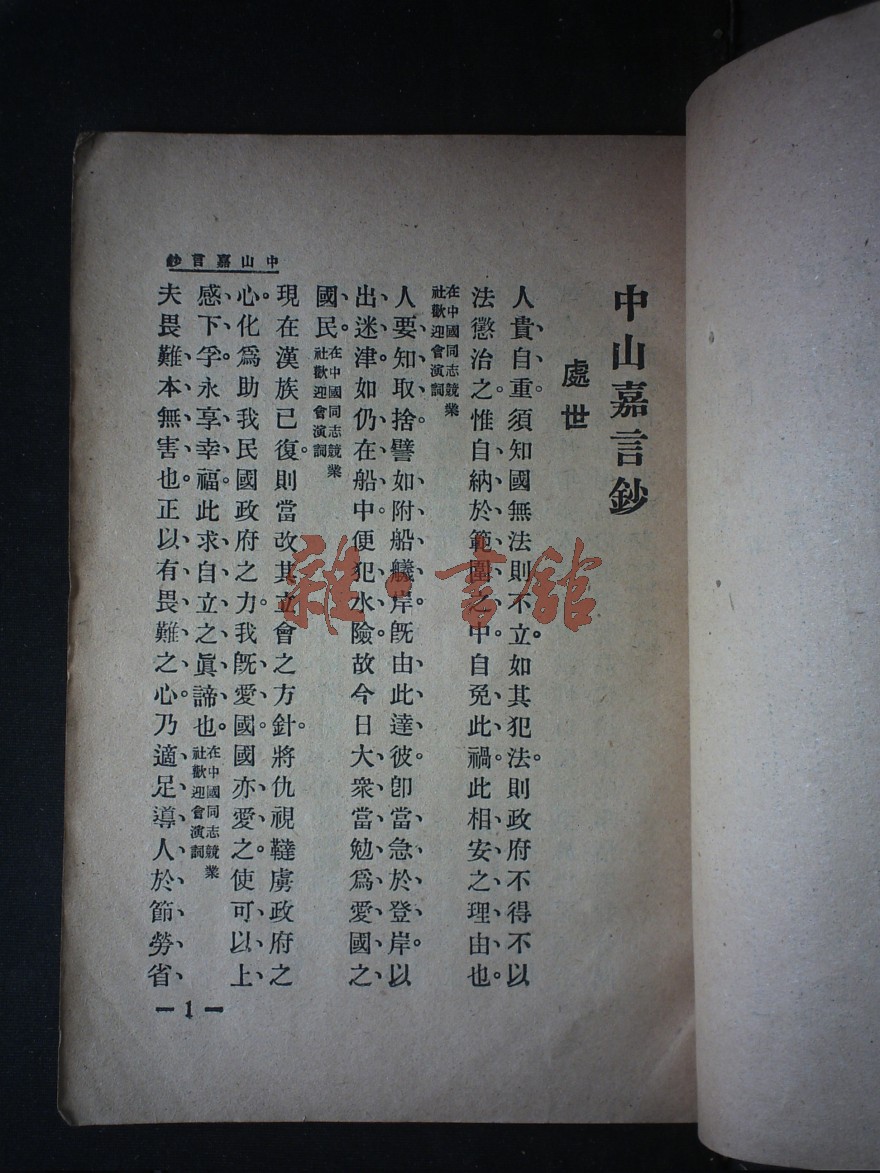 中山嘉言鈔
處世
人貴自重。須知國無法則不立。如其犯法。則政府不得不以
法懲治之。惟自納於範圍之中。自免此禍。此相安之理由也。
在中國同志競業
社歡迎會演詞
人要知取捨。譬如附船艤岸。旣由此達彼。卽當急於登岸。以
出迷津。如仍在船中。便犯水險。故今日大衆當勉爲愛國之
國民。
在中國同志競業
社歡迎會演詞
現在漢族已復。則當改其立會之方針。將仇視韃虜政府之
心。化爲助我民國政府之力。我旣愛國。國亦愛之。使可以上
感下孚。永享幸福。此求自立之眞諦也。
在中國同志競業
社歡迎會演詞
夫畏難本無害也。正以有畏難之心。乃適足導人於節勞省
中山嘉言鈔
— 1 —
雜·書舘